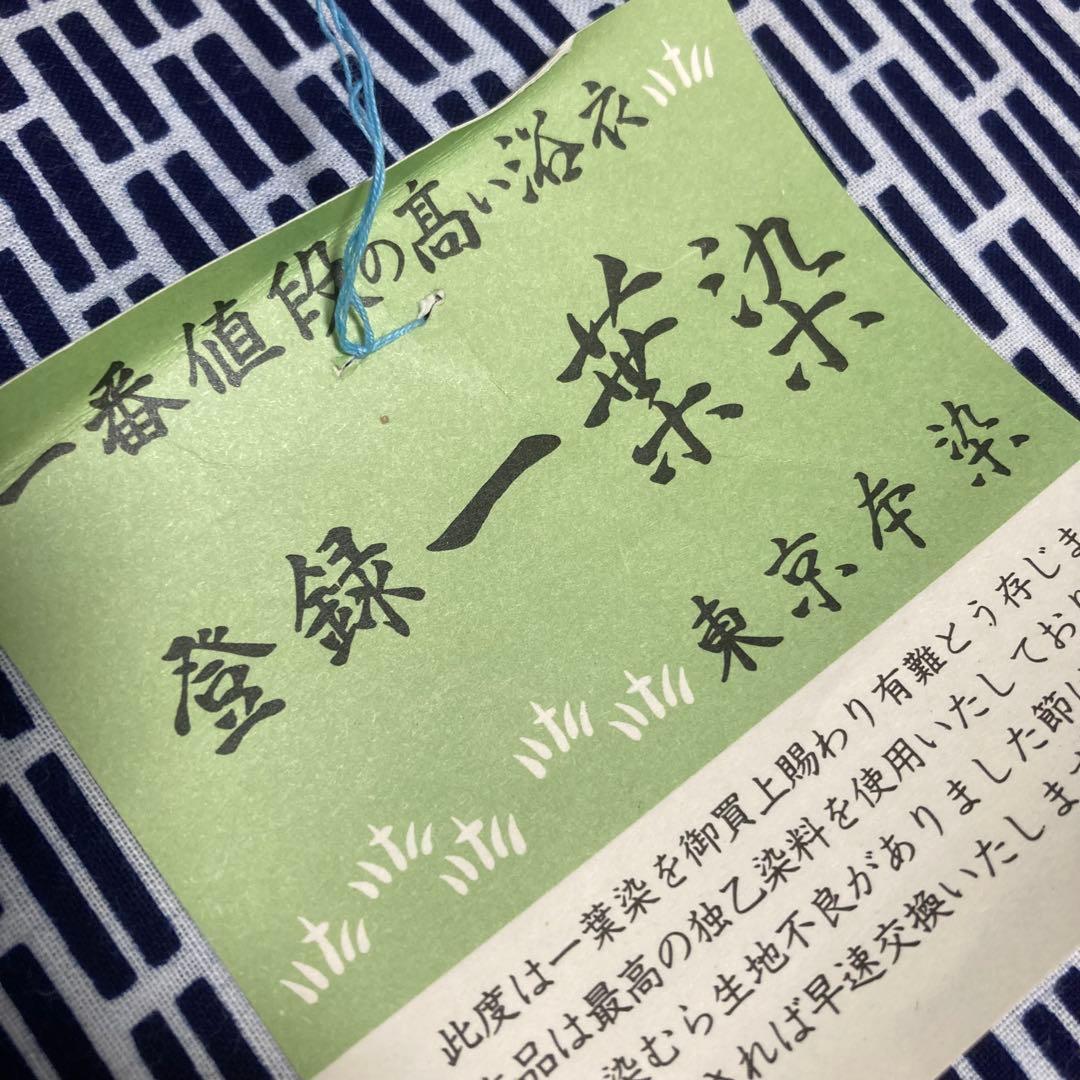 一番値段の高い浴衣
登録一葉染
東京本染
此度は一葉染を御買上賜わり有難とう存じま
品は最高の独乙染料を使用いたしており
染むら生地不良がありました節は
れば早速交換いたしま